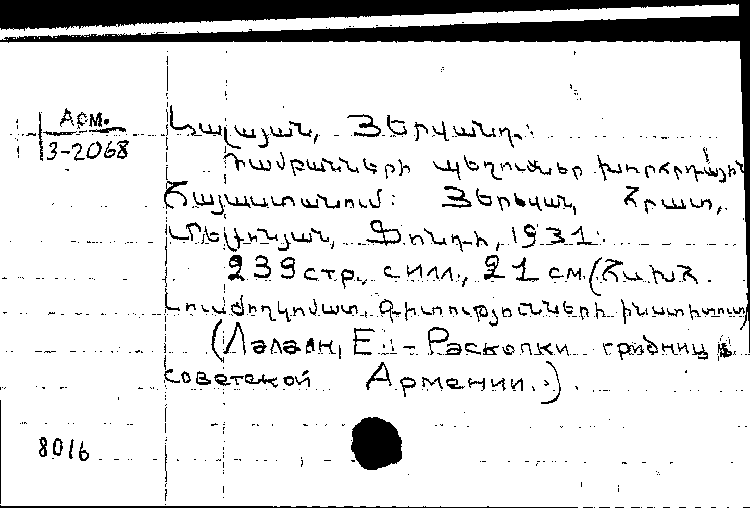 Арм.
3-2068
Լալայան, Յերվանդ:
Դամբանների պեղումներ խորհրդային
Հայաստանում: Յերևան, Հրատ.
Մելքոնյան Ֆոնդի, 1931:
239 стр., с илл., 21 см (ՀԽՍՀ.
Լուսժողկոմատ. Գիտությունների ինստիտուտ)
(Лалаян, Е. - Раскопки гробниц в
советской Армении.).
8016